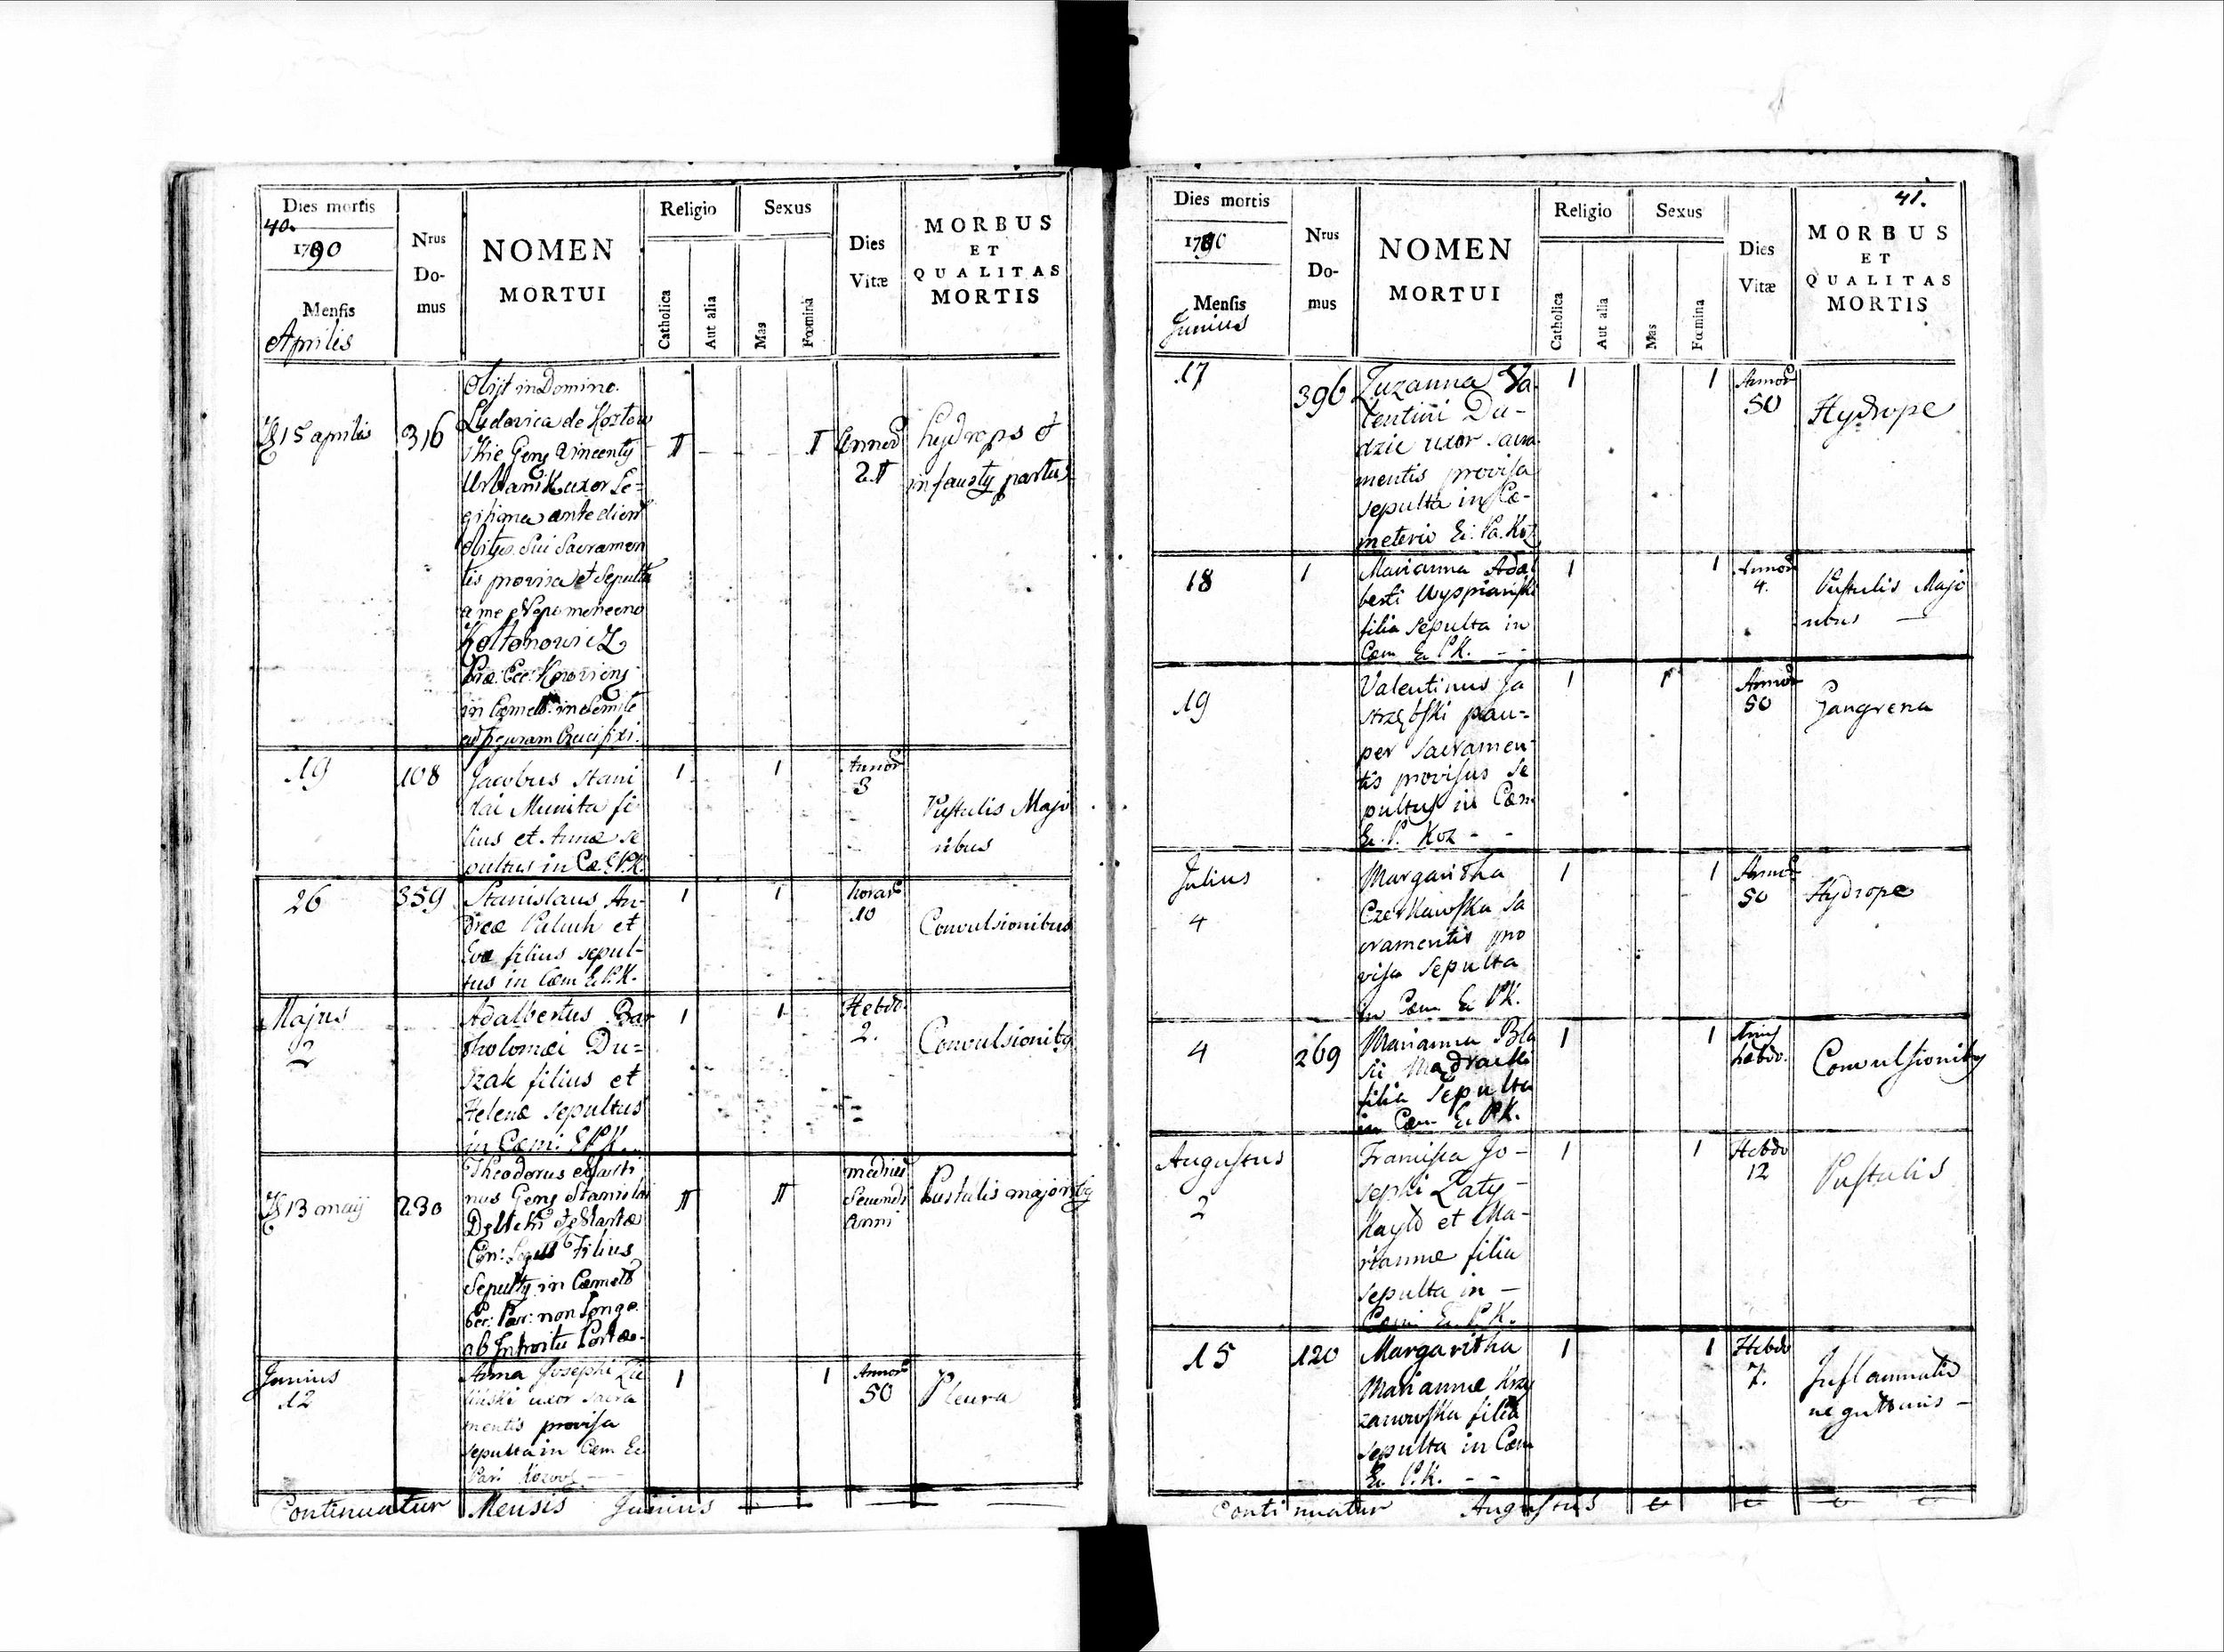 Dies mortis
40.
1790
Mensis
Aprilis
Nrus
Do-
mus
NOMEN
MORTUI
Religio
Catholica
Aut alia
Sexus
Mas
Fœmina
Dies
Vitæ
MORBUS
ET
QUALITAS
MORTIS
15 aprilis
316
Obijt in Domino.
Ludovica de Kozłow
skie Gens Vincenty
Urbanik uxor Le=
gitima ante diem
obitus Sui Sacramen
tis provisa et Sepulta
a me Nepomuceno
Kołtonowicz
in Cœmet:
ad figuram Crucifixi.
1
1
Annor
21
hydrops et
infausty partus
19
108
Jacobus Stani
slai Munita fi
lius et Annæ se
pultus in Cæ. E.P.K.
1
1
Annor
3
Pustulis Majo
ribus
26
359
Stanislaus An-
dreæ et
Evæ filius sepul-
tus in Cœm E.P.K.
1
1
horar
10
Convulsionibus
Majus
2
Adalbertus Bar
tholomæi Du=
szak filius et
Helenæ sepultus
in Cœm: E.P.K.
1
1
Hebdo.
2.
Convulsioniby
13 maij
230
Theodorus
nus Gens Stanislai
et Martæ
Con: Filius
Sepulty in Cœmet
Ecc: Par: non Longe
ab Introitu Portæ.
1
1
medius
Secundi
Anni
Pustulis majoriby
Junius
12
Anna Josephi
uxor Sacra
mentis provisa
sepulta in Cœm Ec
Par:
1
1
Annor
50
Pleura
Continuatur Mensis Junius
Dies mortis
1790
Mensis
Junius
Nrus
Do-
mus
NOMEN
MORTUI
Religio
Catholica
Aut alia
Sexus
Mas
Fœmina
Dies
Vitæ
41.
MORBUS
ET
QUALITAS
MORTIS
17
396
Zuzanna Va-
lentini Du-
dzic uxor Sacra
mentis provisa
sepulta in Cæ-
meterio Ec: Pa. Koz
1
1
Annor
50
Hydrope
18
1
Marianna Adal
berti Wyspiański
filia Sepulta in
Cœm Ec P.K. - -
1
1
Annor
4.
Pustulis Majo
ribus
19
Valentinus Ja
strzębski pau=
per Sacramen-
tis provisus Se
pultus in Cœm
Ec. P. Koz - -
1
1
Annor
50
Gangrena
Julius
4
Margaritha
Czerkawska Sa
cramentis pro
visa Sepulta
in Cœm Ec P.K.
1
1
Annor
50
Hydrope
4
269
Marianna Bla
sii
filia Sepulta
in Cœm Ec P.K.
1
1
hebdo.
Convulsioniby
Augustus
2
Francisca Jo-
sephi Laty-
et Ma-
rianne filia
sepulta in -
Cœm Ec. P.K.
1
1
Hebdo
12
Pustulis
15
120
Margaritha
Marianne Krzy
zanowska filia
sepulta in Cœm
Ec P.K. - -
1
1
Hebdo
7.
Inflammatio
ne gutturis -
Continuatur Augustus